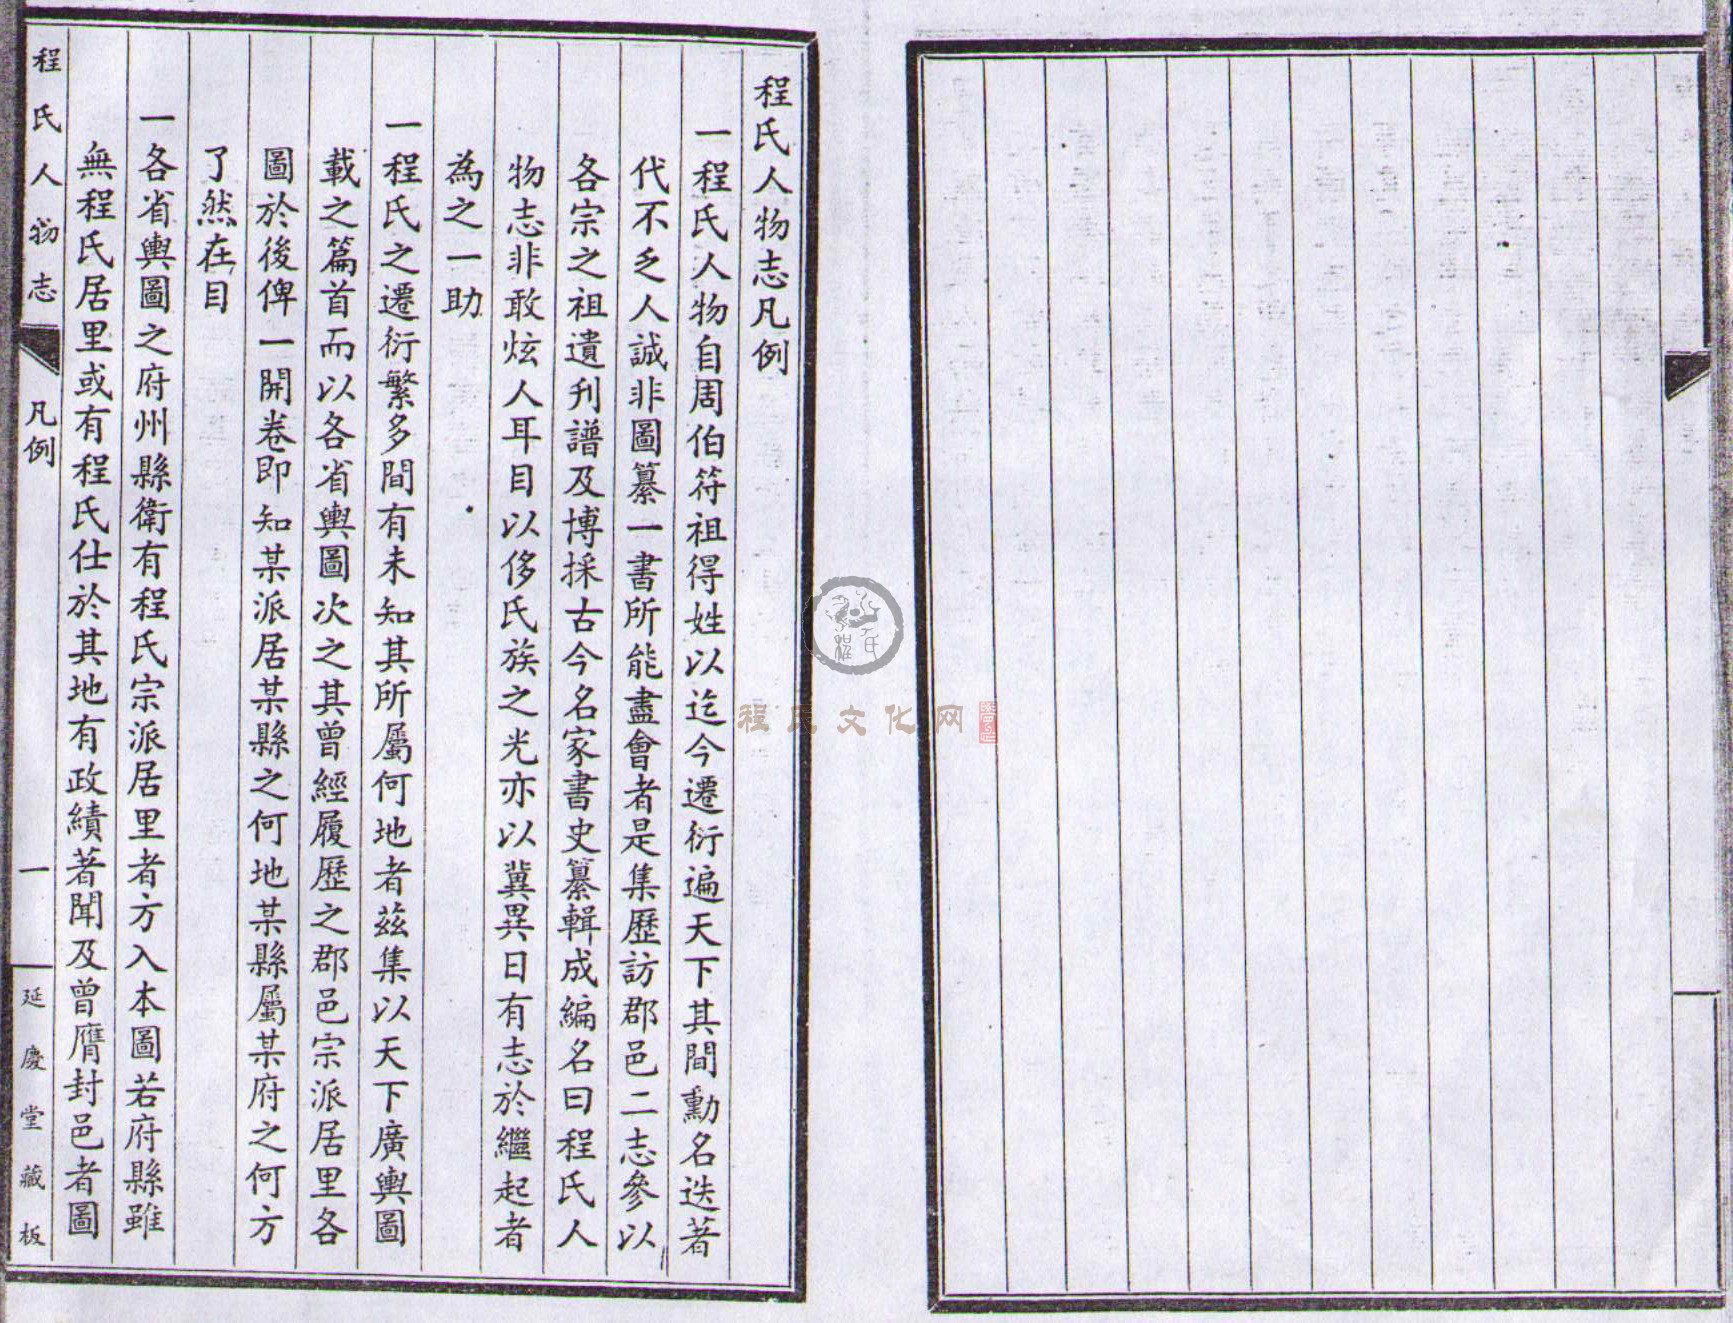 程氏人物志凡例
一程氏人物自周伯符祖得姓以迄今遷衍遍天下其間勳名迭著
代不乏人誠非圖纂一書所能盡會者是集歷訪郡邑二志參以
各宗之祖遺刋譜及博採古今名家書史纂輯成編名曰程氏人
物志非敢炫人耳目以侈氏族之光亦以冀異日有志於繼起者
為之一助
一程氏之遷衍繁多間有未知其所屬何地者茲集以天下廣輿圖
載之篇首而以各省輿圖次之其曾經履歷之郡邑宗派居里各
圖於後俾一開卷即知某派居某縣之何地某縣屬某府之何方
了然在目
一各省輿圖之府州縣衛有程氏宗派居里者方入本圖若府縣雖
無程氏居里或有程氏仕於其地有政績著聞及曾膺封邑者圖
程氏人物志 凡例 一 延慶堂藏板
程氏文化网